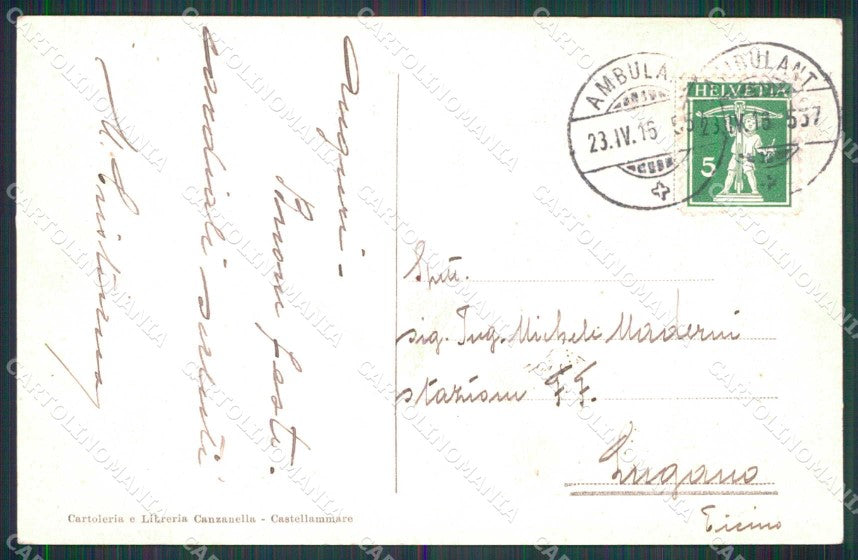 Auguri -
Buone feste.
cordiali saluti
AMBULANT
23.IV.16
AMBULANT
23.IV.16 537
HELVETIA
5
Spett.
sig. Ing. Micheli Maderni
stazioni FF.
Lugano
Ticino
Cartoleria e Libreria Canzanella - Castellammare
CARTOLINOMANIA